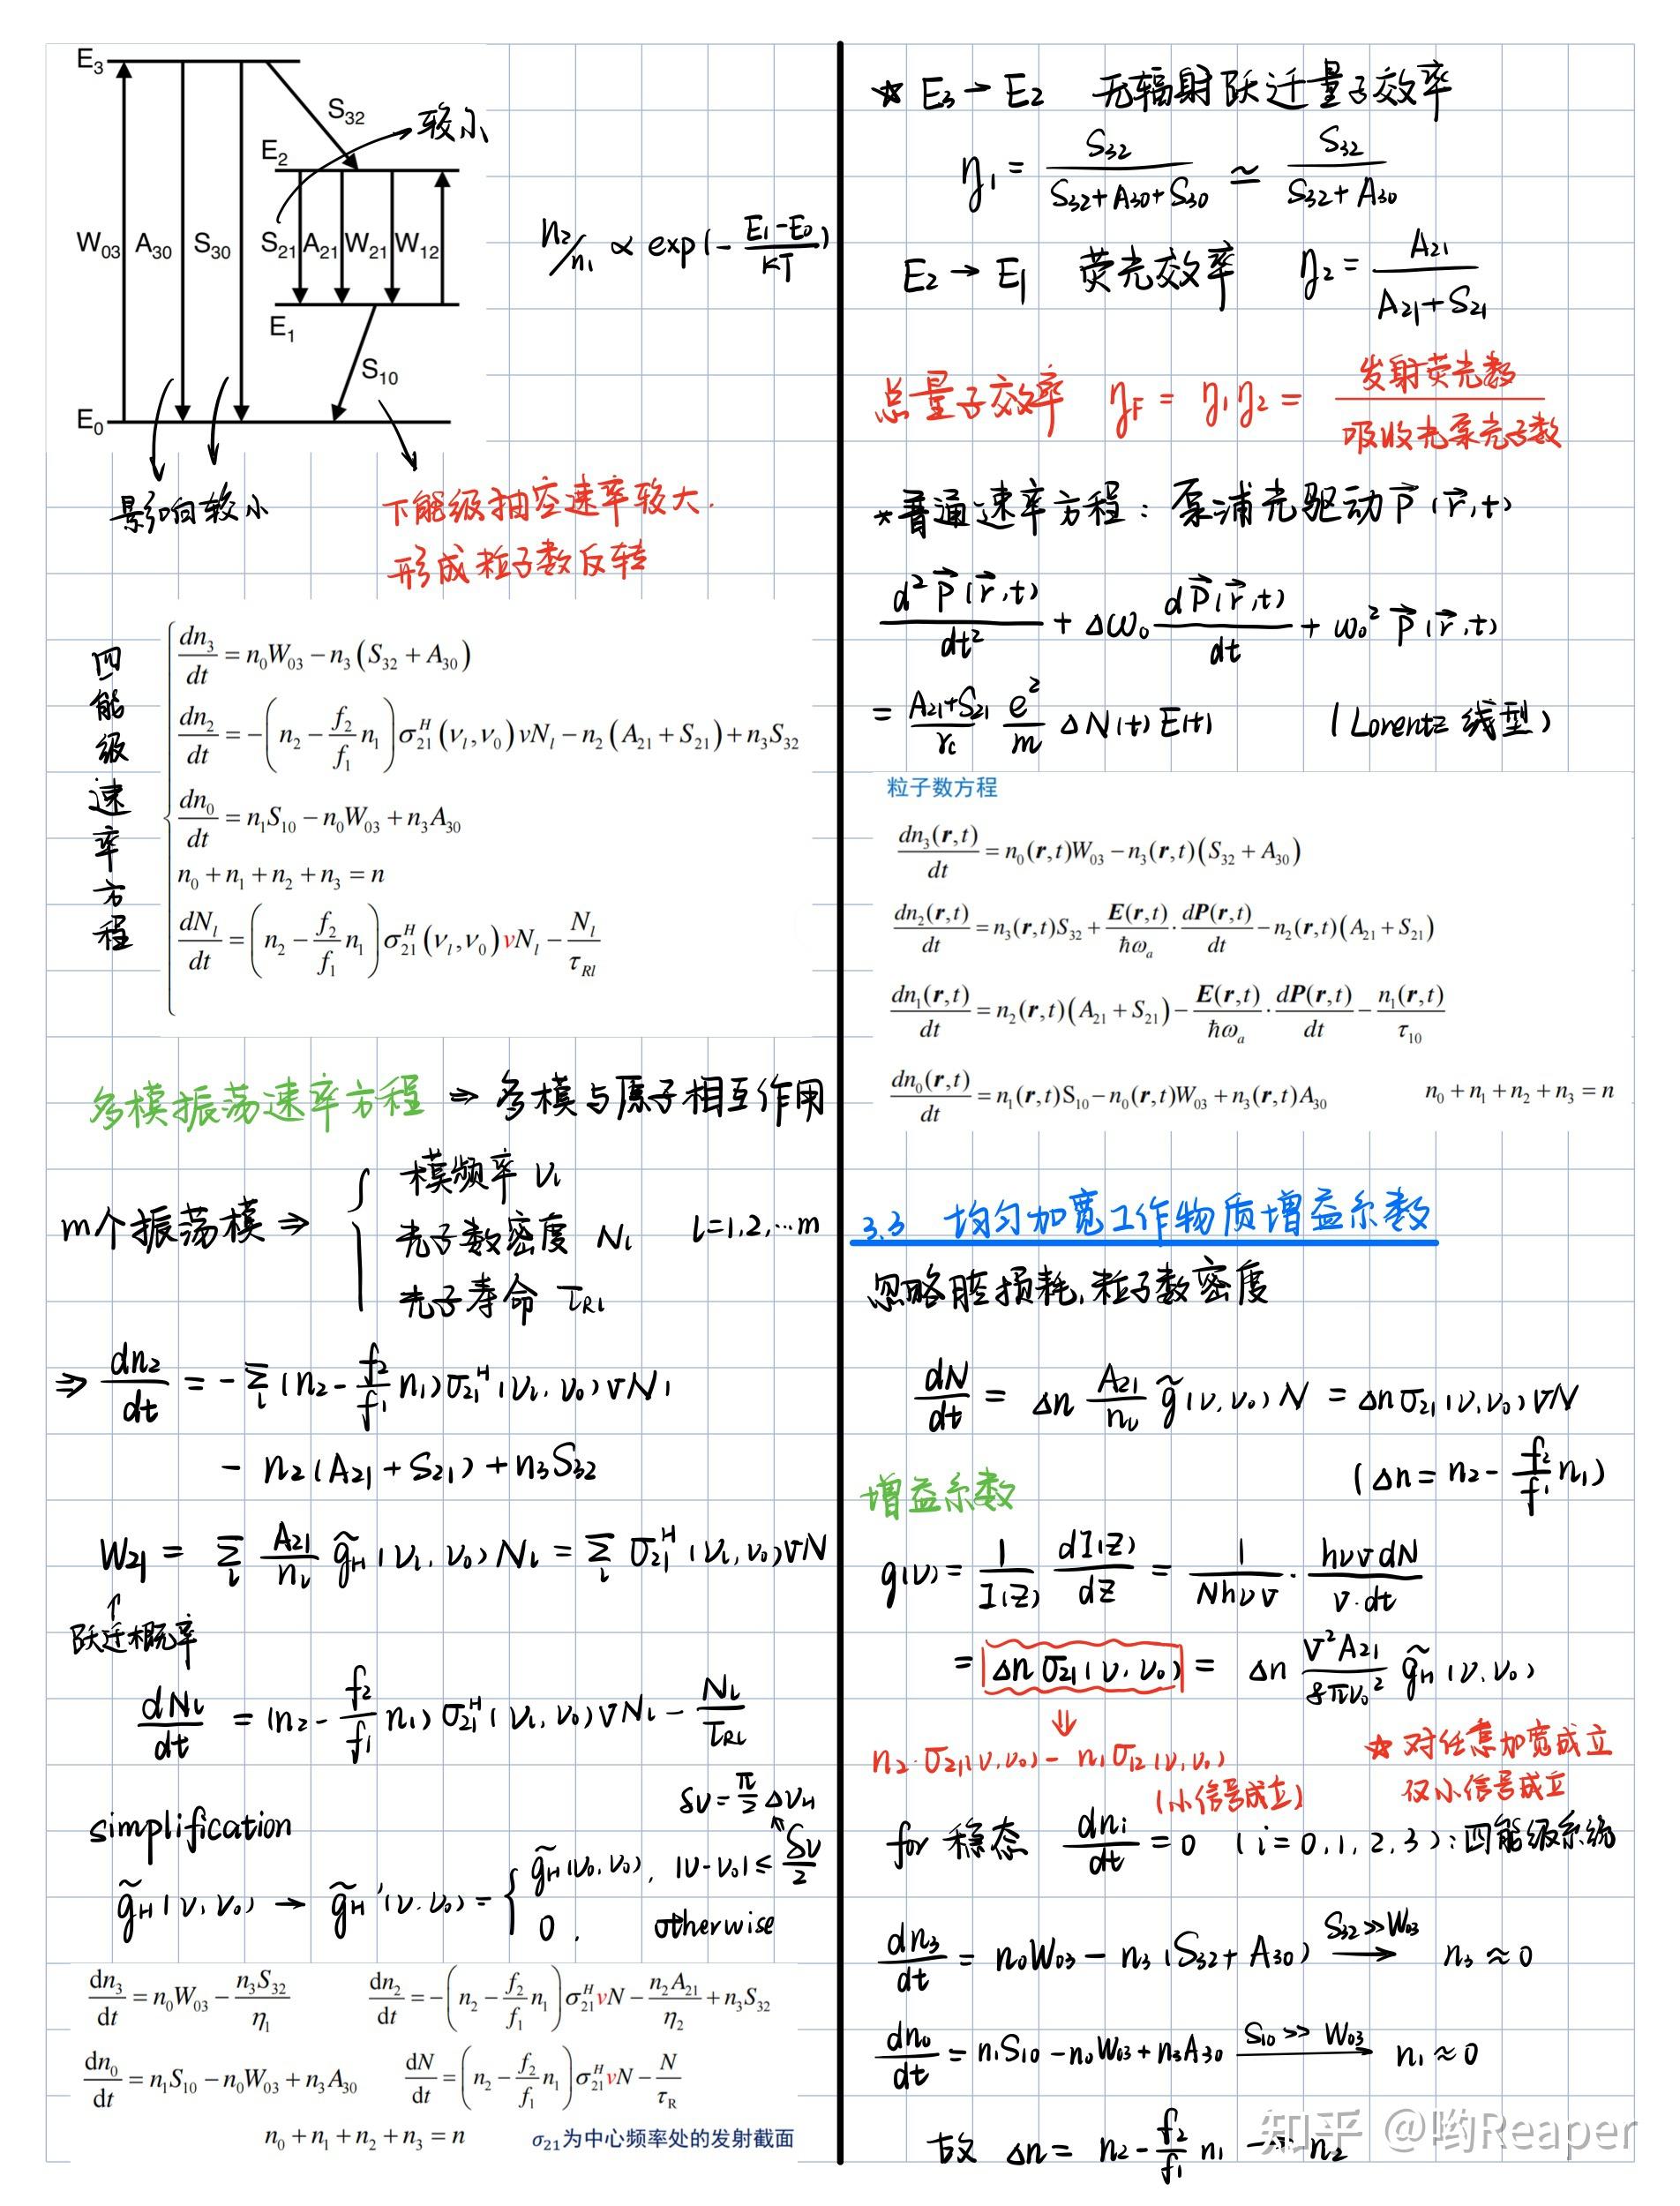 E₃
S₃₂
→ 较小
E₂
W₀₃ A₃₀ S₃₀ S₂₁ A₂₁ W₂₁ W₁₂
n₂/n₁ ∝ exp(-(E₁-E₀)/KT)
E₁
S₁₀
E₀
影响较小
下能级抽空速率较大.
形成粒子数反转
四能级速率方程
dn₃/dt = n₀W₀₃ - n₃(S₃₂ + A₃₀)
dn₂/dt = -(n₂ - f₂/f₁ n₁)σ₂₁ᴴ(ν_l, ν₀)vN_l - n₂(A₂₁ + S₂₁) + n₃S₃₂
dn₀/dt = n₁S₁₀ - n₀W₀₃ + n₃A₃₀
n₀ + n₁ + n₂ + n₃ = n
dN_l/dt = (n₂ - f₂/f₁ n₁)σ₂₁ᴴ(ν_l, ν₀)vN_l - N_l/τ_Rl
多模振荡速率方程 ⇒ 多模与原子相互作用
m个振荡模 ⇒
模频率 ν_l
光子数密度 N_l l=1,2,…m
光子寿命 τ_Rl
⇒ dn₂/dt = -Σ_l (n₂ - f₂/f₁ n₁)σ₂₁ᴴ(ν_l, ν₀)vN_l
- n₂(A₂₁ + S₂₁) + n₃S₃₂
W₂₁ = Σ_l A₂₁/n_ν g̃_H(ν_l, ν₀)N_l = Σ_l σ₂₁ᴴ(ν_l, ν₀)vN
↑
跃迁概率
dN_l/dt = (n₂ - f₂/f₁ n₁)σ₂₁ᴴ(ν_l, ν₀)vN_l - N_l/τ_Rl
δν = π/2 Δν_H
simplification
g̃_H(ν, ν₀) → g̃_H'(ν, ν₀) = { g̃_H(ν₀, ν₀), |ν-ν₀| ≤ δν/2
0, otherwise
dn₃/dt = n₀W₀₃ - n₃S₃₂/η₁ dn₂/dt = -(n₂ - f₂/f₁ n₁)σ₂₁ᴴvN - n₂A₂₁/η₂ + n₃S₃₂
dn₀/dt = n₁S₁₀ - n₀W₀₃ + n₃A₃₀ dN/dt = (n₂ - f₂/f₁ n₁)σ₂₁ᴴvN - N/τ_R
n₀ + n₁ + n₂ + n₃ = n σ₂₁为中心频率处的发射截面
☆ E₃ → E₂ 无辐射跃迁量子效率
η₁ = S₃₂/(S₃₂+A₃₀+S₃₀) ≃ S₃₂/(S₃₂+A₃₀)
E₂ → E₁ 荧光效率 η₂ = A₂₁/(A₂₁+S₂₁)
总量子效率 η_F = η₁η₂ = 发射荧光数/吸收光泵光子数
*普通速率方程: 泵浦光驱动 P⃗(r⃗,t)
d²P⃗(r⃗,t)/dt² + Δω₀ dP⃗(r⃗,t)/dt + ω₀² P⃗(r⃗,t)
= (A₂₁+S₂₁)/γ_c e²/m ΔN(t)E(t) (Lorentz 线型)
粒子数方程
dn₃(r,t)/dt = n₀(r,t)W₀₃ - n₃(r,t)(S₃₂ + A₃₀)
dn₂(r,t)/dt = n₃(r,t)S₃₂ + E(r,t)/ħω_a · dP(r,t)/dt - n₂(r,t)(A₂₁ + S₂₁)
dn₁(r,t)/dt = n₂(r,t)(A₂₁ + S₂₁) - E(r,t)/ħω_a · dP(r,t)/dt - n₁(r,t)/τ₁₀
dn₀(r,t)/dt = n₁(r,t)S₁₀ - n₀(r,t)W₀₃ + n₃(r,t)A₃₀ n₀ + n₁ + n₂ + n₃ = n
3.3 均匀加宽工作物质增益系数
忽略腔损耗,粒子数密度
dN/dt = Δn A₂₁/n_ν g̃(ν, ν₀)N = Δnσ₂₁(ν, ν₀)vN
(Δn = n₂ - f₂/f₁ n₁)
增益系数
g(ν) = 1/I(Z) dI(Z)/dZ = 1/(Nhνv) · hνvdN/(v·dt)
= Δnσ₂₁(ν, ν₀) = Δn v²A₂₁/8πν₀² g̃_H(ν, ν₀)
⇓
n₂·σ₂₁(ν, ν₀) - n₁σ₁₂(ν, ν₀)
(小信号成立)
☆ 对任意加宽成立
仅小信号成立
for 稳态 dnᵢ/dt = 0 (i=0,1,2,3):四能级系统
dn₃/dt = n₀W₀₃ - n₃(S₃₂+A₃₀) —S₃₂≫W₀₃→ n₃≈0
dn₀/dt = n₁S₁₀ - n₀W₀₃ + n₃A₃₀ —S₁₀≫W₀₃→ n₁≈0
故 Δn = n₂ - f₂/f₁ n₁ → n₂
知乎 @哟Reaper